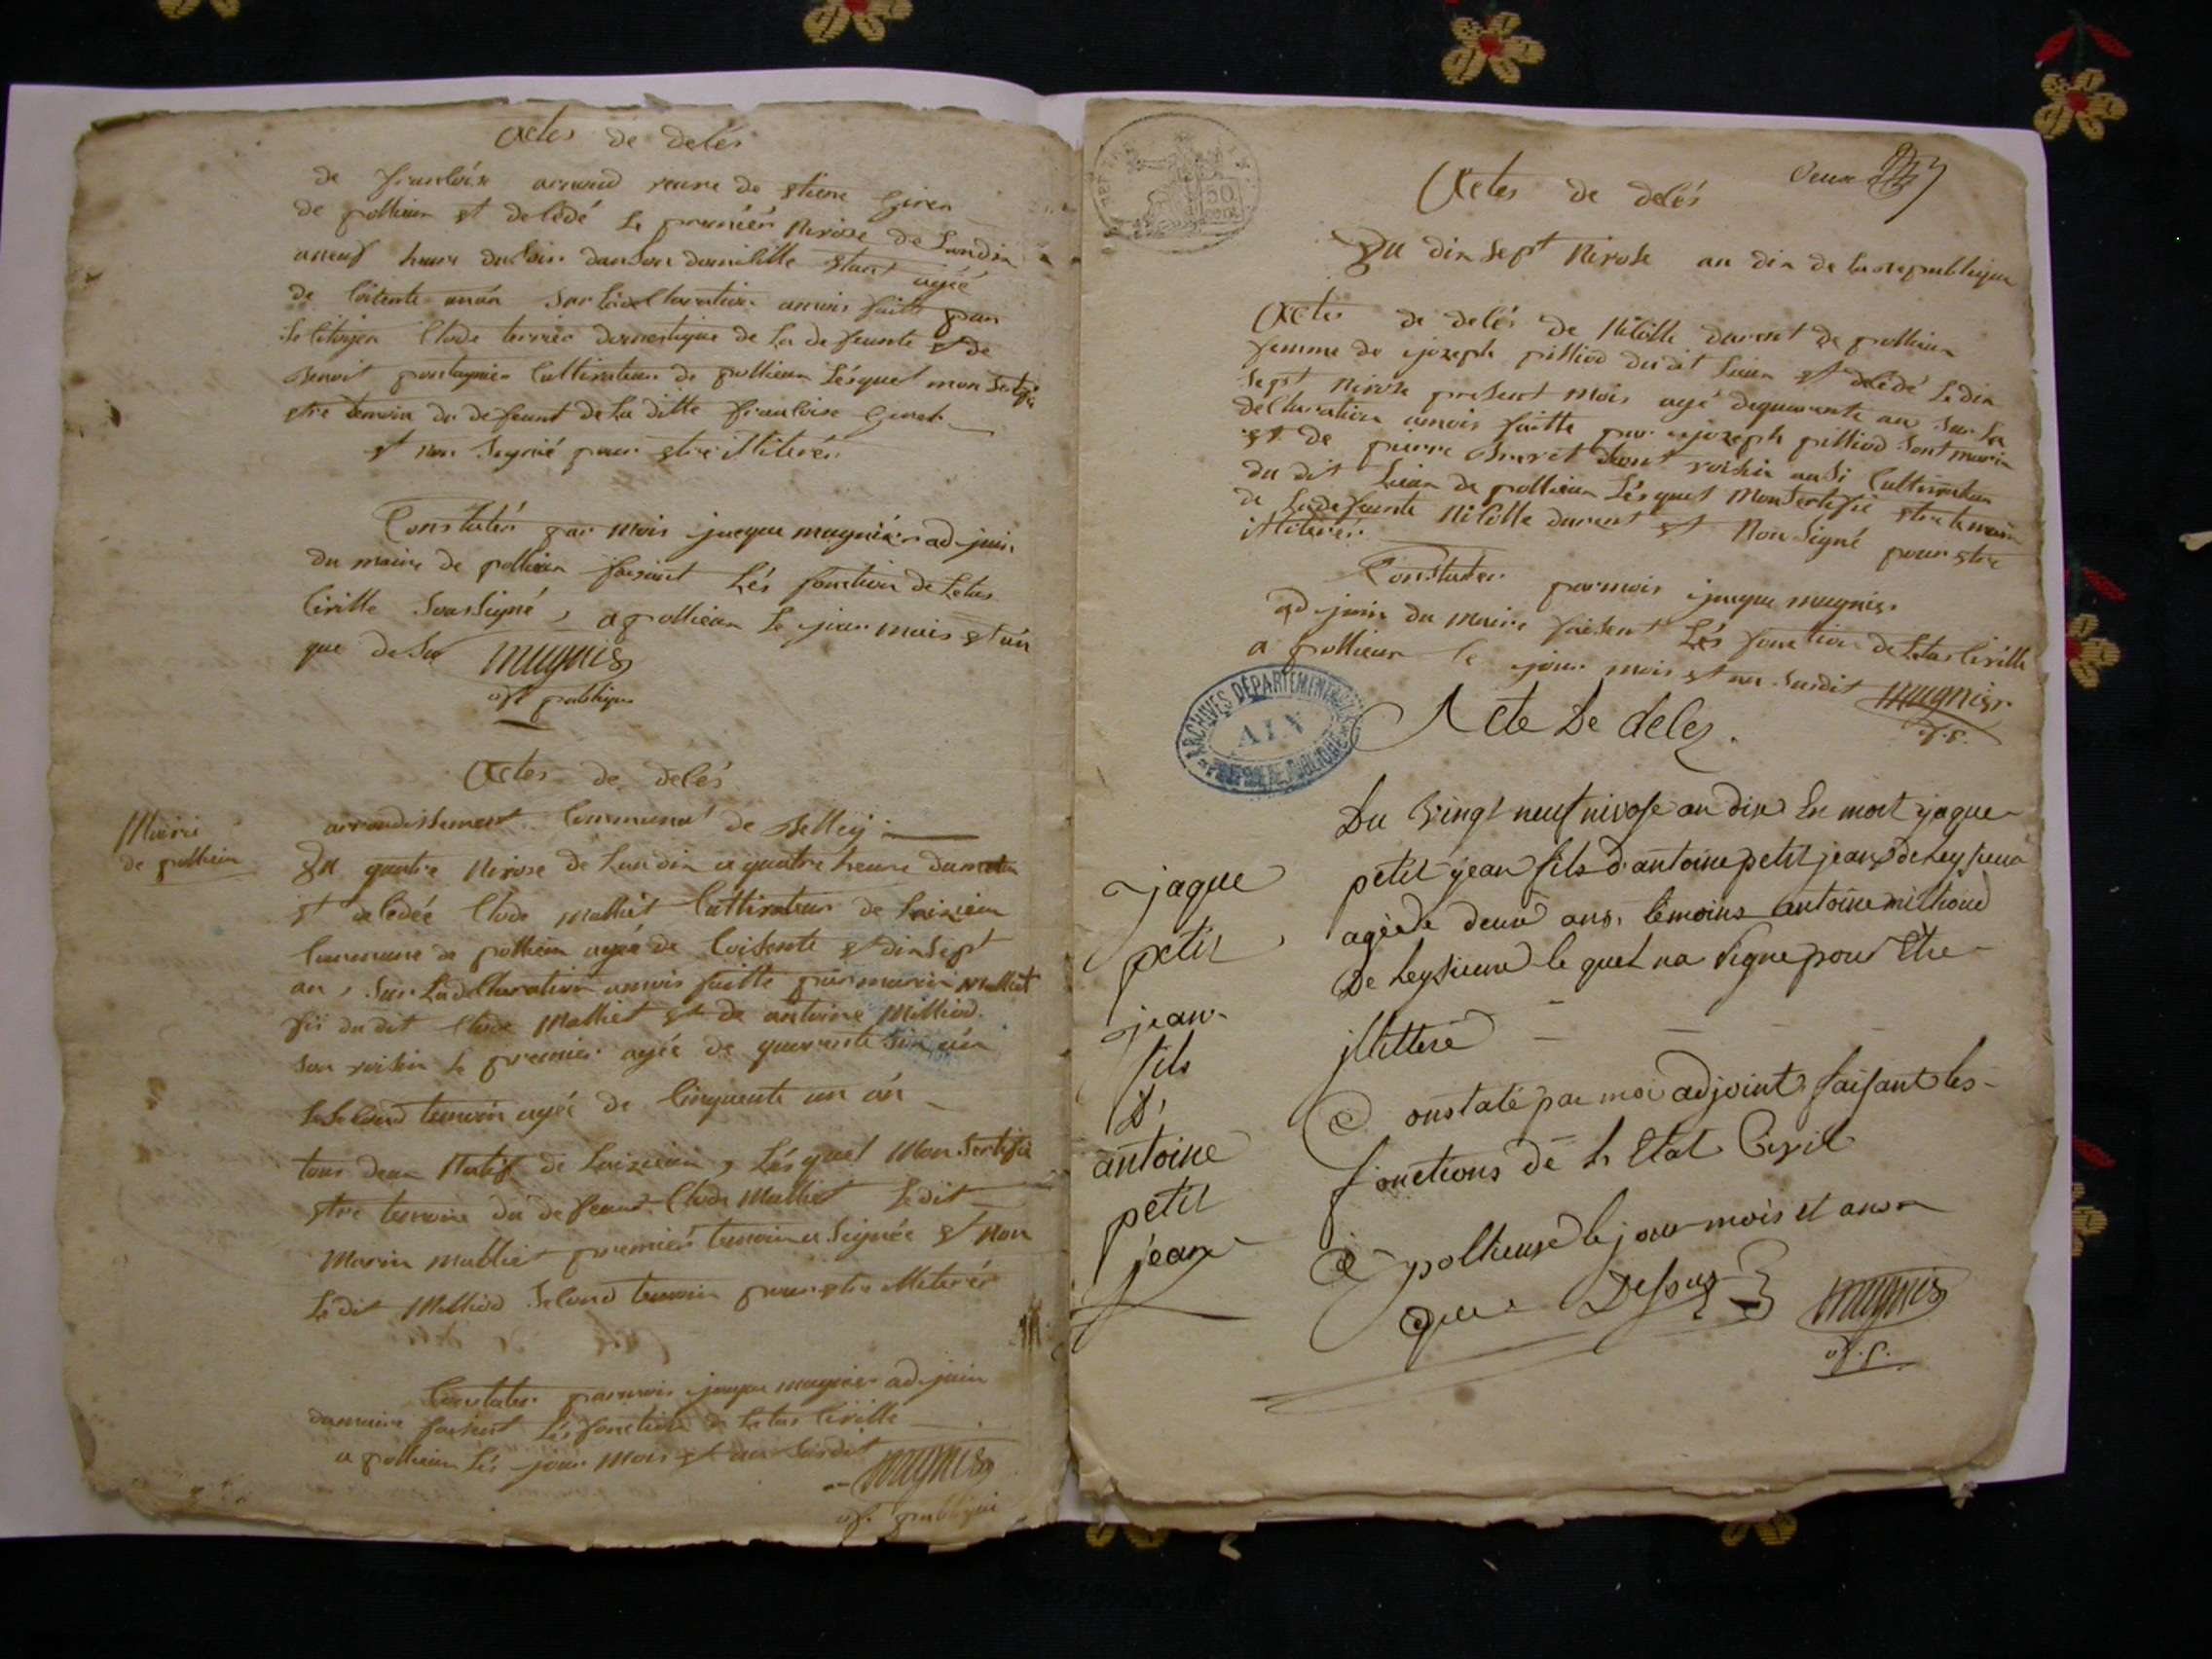 Actes de delés
de franloise arnaud veuve de Etiene Giren
de pollieu et deledé Le premiér Nivose de Landix
aneuf heure du Soir dan Son domilille etant agéé
de Soitente un án Sur la declaration amois faitte par
le litoyen Clode terrier domestique de La defeunte et de
Benoit pontagnier Cultivateur de pollieu Lésquel mon Sertifié
etre temoin du defeunt de La ditte franloise Ginet
et non Signié pour etre illiterér
Constatér par mois jacque magniér adjoin
du maire de pollieu faisant Lés fonction de Letas
Civille Sousigné, a pollieu Le jour mois et án
que deSu magnier
of. publique
Actes de delés
Mairie
de pollieu
arrondissement Communal de Belley
Du quatre Nivose de Landix a quatre heure du matin
et deledée Clode malliet Cultivateur de Loizieu
Commune de pollieu agée de Soisente et dix Sept
an, Sur La dellaration amois faitte par marin malliet
fis du dit Clode Malliet et de antoine Milliod
Son voisin le premier agée de quarante Six án
le Selond temoin agée de Cinquante un án
tous deux Natif de Loizieu, Lésquel Mon Sertifié
etre temoin du defeunt Clode Malliet Ledit
Marin malliet premiér temoin a Signée et Non
Ledit Milliod Selond temoin pour etre illiterér
Constater parmois jacque magnier adjoin
du maire faisent Lés fonction de Letas Civille
a pollieu Lés jour Mois et an Susdit magnier
of. publique
50
cent
deux
Actes de delés
Du dix Sept Nivose an dix de la republique
Actes de delés de Nilolle durent de pollieu
femme de jozeph pilliod dudit Lieu et déledé Le dix
Sept Nivose present mois agé dequarante an Sur La
dellaration amois faitte par jozeph pilliod Sont marie
et de pierre Buret Sont voisin ausi Cultivateur
du dit Lieu de pollieu Lésquel Mon Sertifié etre temoin
de Ladefeunte Nilolle durent et Non Signé pour etre
illiterér
Constater parmois jacque magnier
adjoin du Maire faisent Lés fonction de Letas Civille
a pollieu le jour mois et an Susdit magnier
of. p.
ARCHIVES DÉPARTEMENTALES
AIN
PROPRIÉTÉ PUBLIQUE
Acte De delez.
Du vingt neuf nivose an dix Est mort jaque
petit jean fils d'antoine petit jean de Leysieux
agéede deux ans, témoins antoine milhoud
De Leysieux le quel na signe pour Etre
jllitteré
jaque
petit
jean
fils
d'
antoine
petit
jean
Constaté par moi adjoint faisant les
fonctions de L Etat Civil
à polieux le jour mois et an
que Dessus magnier
of. p.